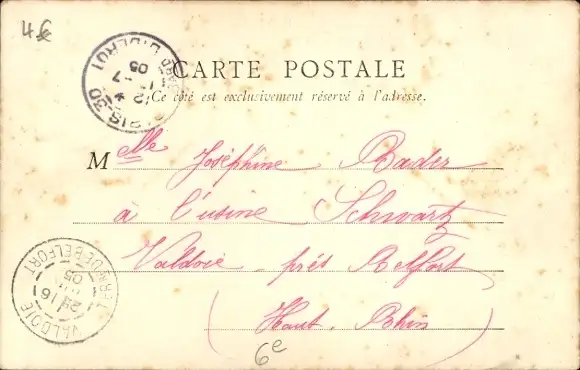 4€
CARTE POSTALE
Ce côté est exclusivement réservé à l'adresse.
Melle Joséphine Bader
à l'usine Schwartz
Valdoie près Belfort
(Haut. Rhin)
6e
DIDEROT
05
VALDOIE
DE BELFORT
16
05